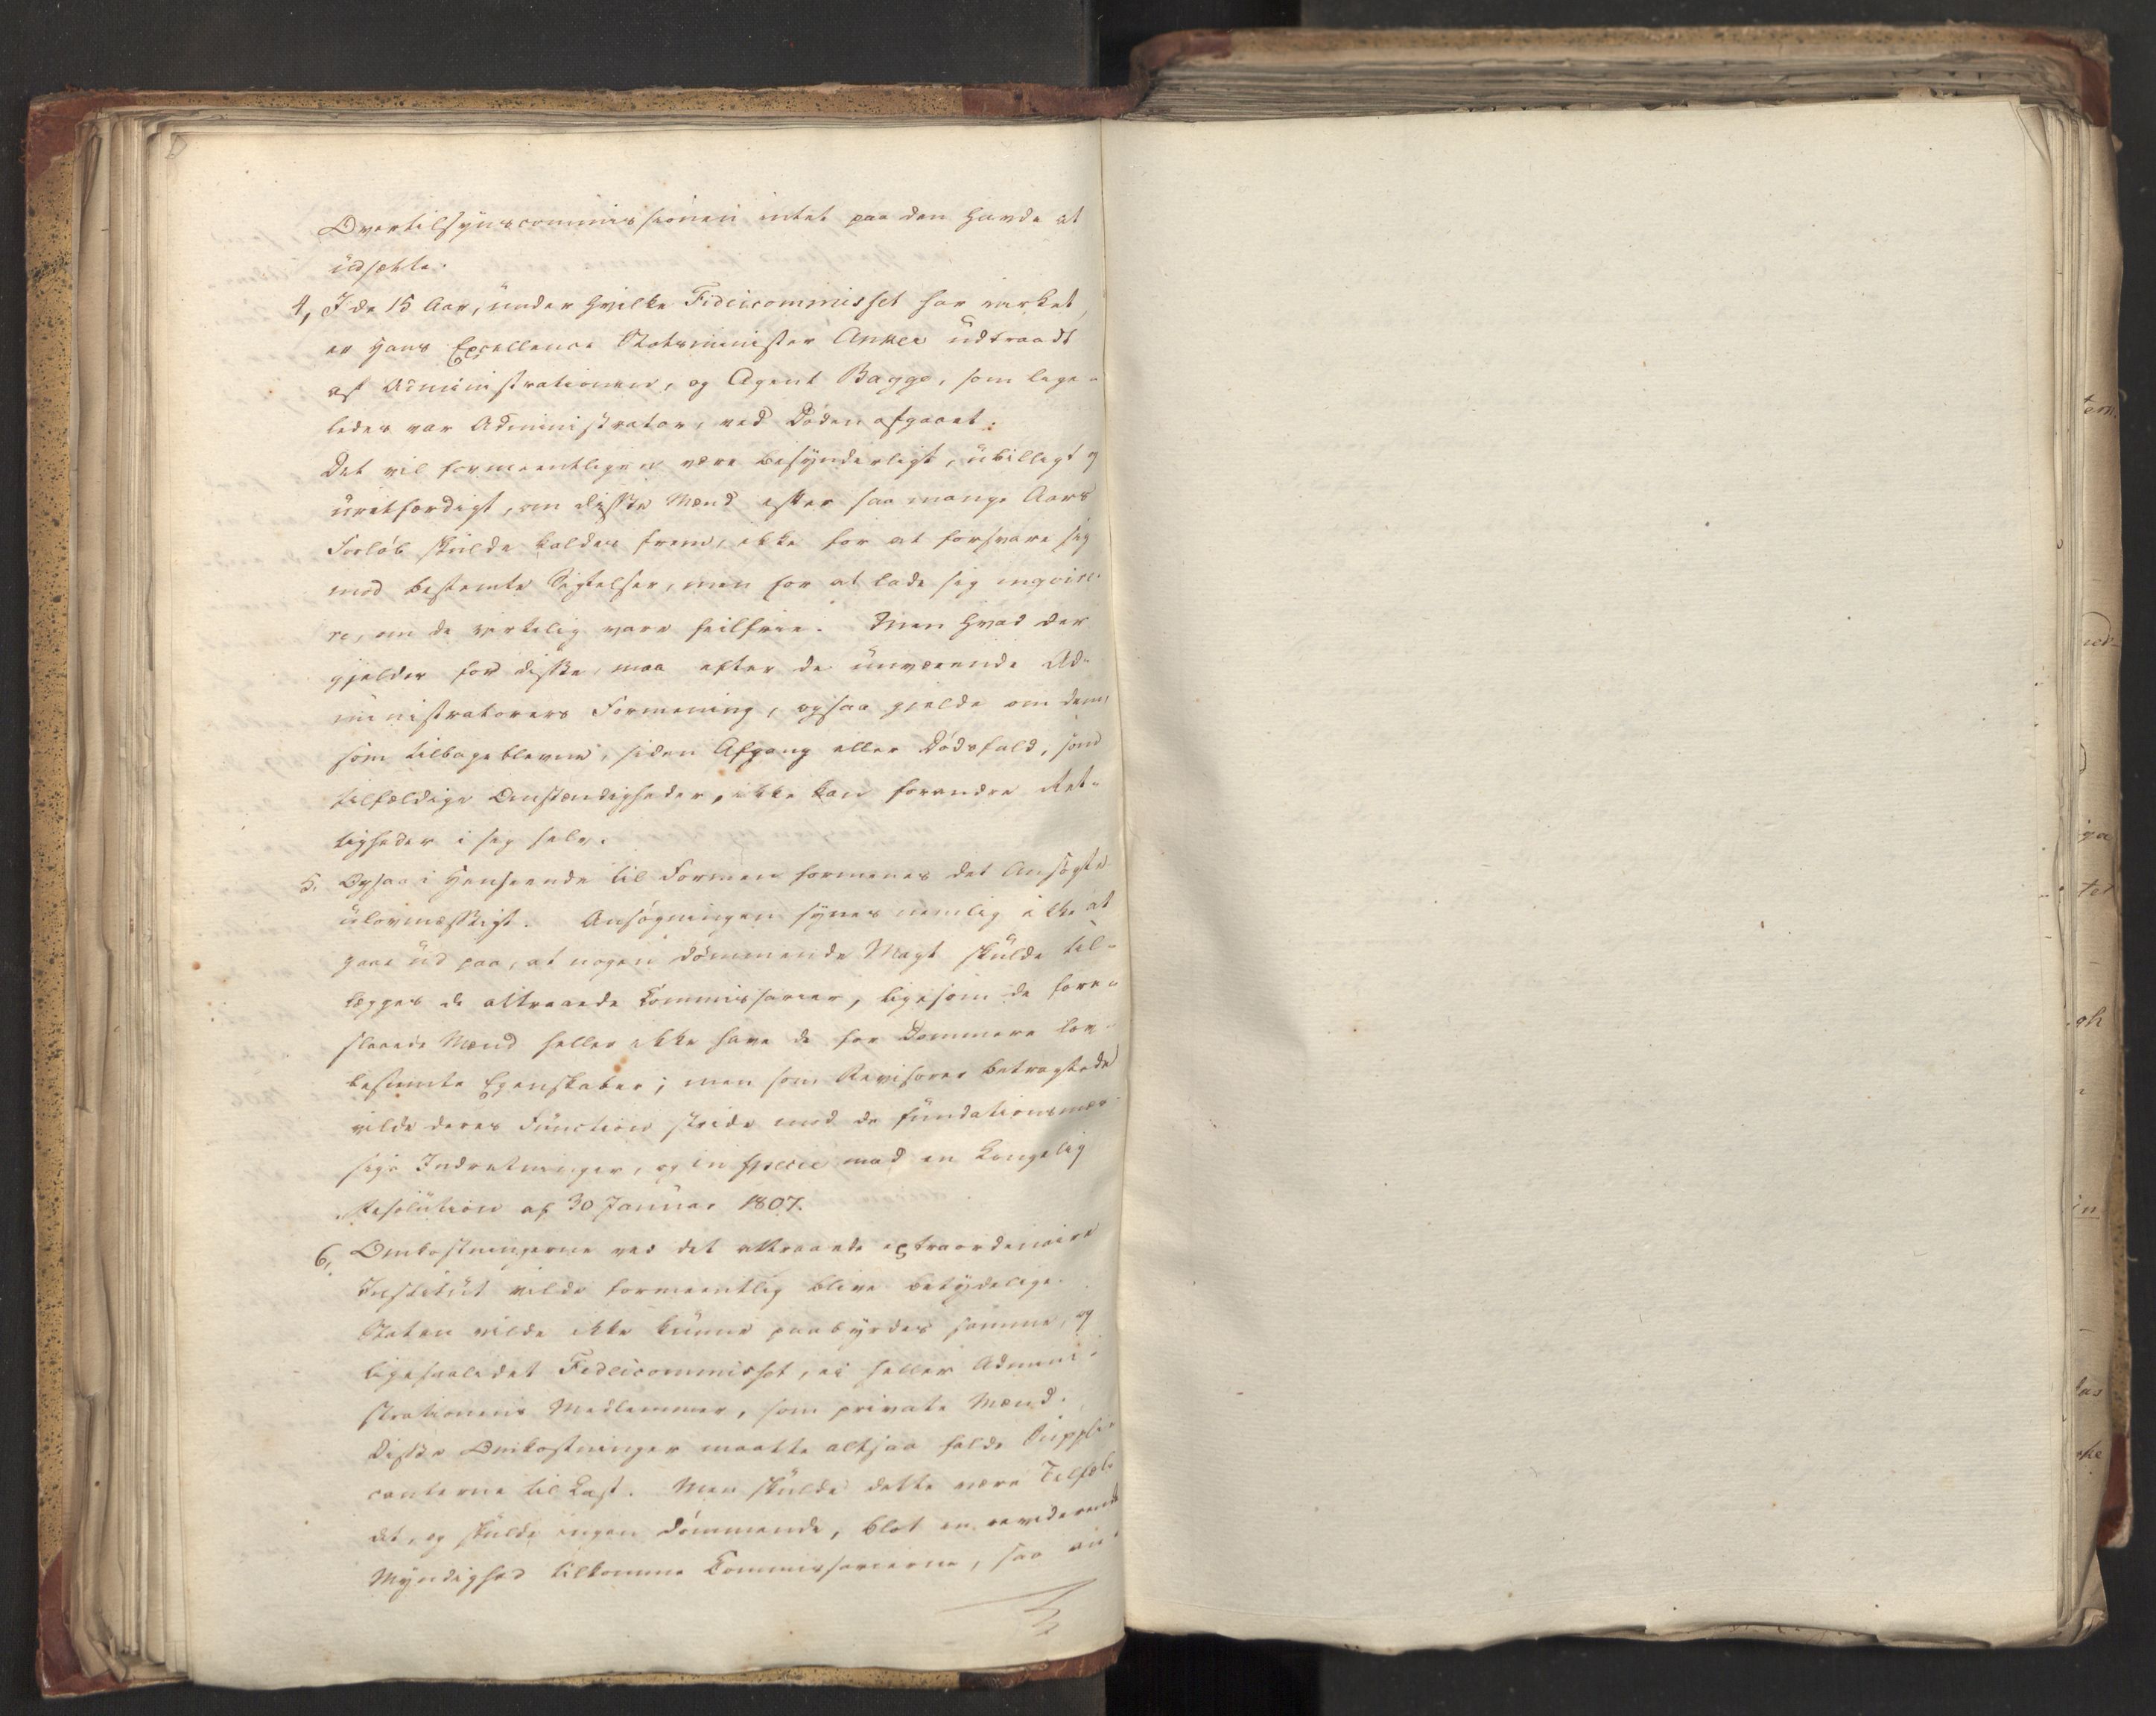 Overtilsÿnscommissionen intet paa den havde at
üdsætte.
4, I de 15 Aar, ünder hvilke Fideicommisset har virket,
er Hans Excellence Statsminister Anker üdtraadt
af Administrationen, og Agent Bagge, som lige-
ledes var Administrator, ved Døden afgaaet.
Det vil formeentligen være besÿnderligt, übilligt og
üretfærdigt, om disse Mænd efter saa mange Aars
Forløb skülde kaldes frem, ikke for at forsvare sig
mod bestemte Sigtelser, men for at lade sig inqvire-
re, om de virkelig vare feilfrie. Men hvad der
gjelder for disse, maa efter de ünværende Ad-
ministratorers Formening, ogsaa gjelde om dem,
som tilbagebleve, siden Afgang eller Dødsfald, som
tilfældige Omstændigheder, ikke kan forandre Ret-
tigheder i sig selv.
5. Ogsaa i Henseende til Formen formenes det Ansøgte
ülovmæssigt. Ansøgningen sÿnes nemlig ikke at
gaae üd paa, at nogen dømmende Magt skülde til-
lægges de attraaede Commissarier, ligesom de fore-
slaaede Mænd heller ikke have de for Dommere lov-
bestemte Egenskaber; men som Revisorer betragtede
vilde deres Fünction stride mod de fündationsmæs-
sige Indretninger, og in specie mod en Kongelig
Resolütion af 30 Janüar 1807.
6, Omkostningerne ved det attraaede extraordinaire
Institüt vilde formeentlig blive betÿdelige.
Staten vilde ikke künne paabÿrdes samme, og
ligesaalidet Fideicommisset, ei heller Admini-
strationens Medlemmer, som private Mænd.
Disse Omkostninger maatte altsaa falde Süppli-
canterne til Last. Men skülde dette være Tilfæl-
det, og skülde ingen dømmende, blot en reviderende
Mÿndighed tilkomme Commissarierne, saa